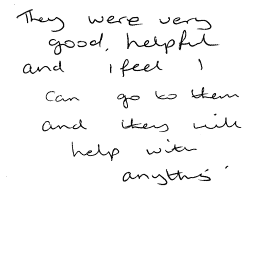 They were very
good, helpful
and i feel I
can go to them
and they will
help with
anything.